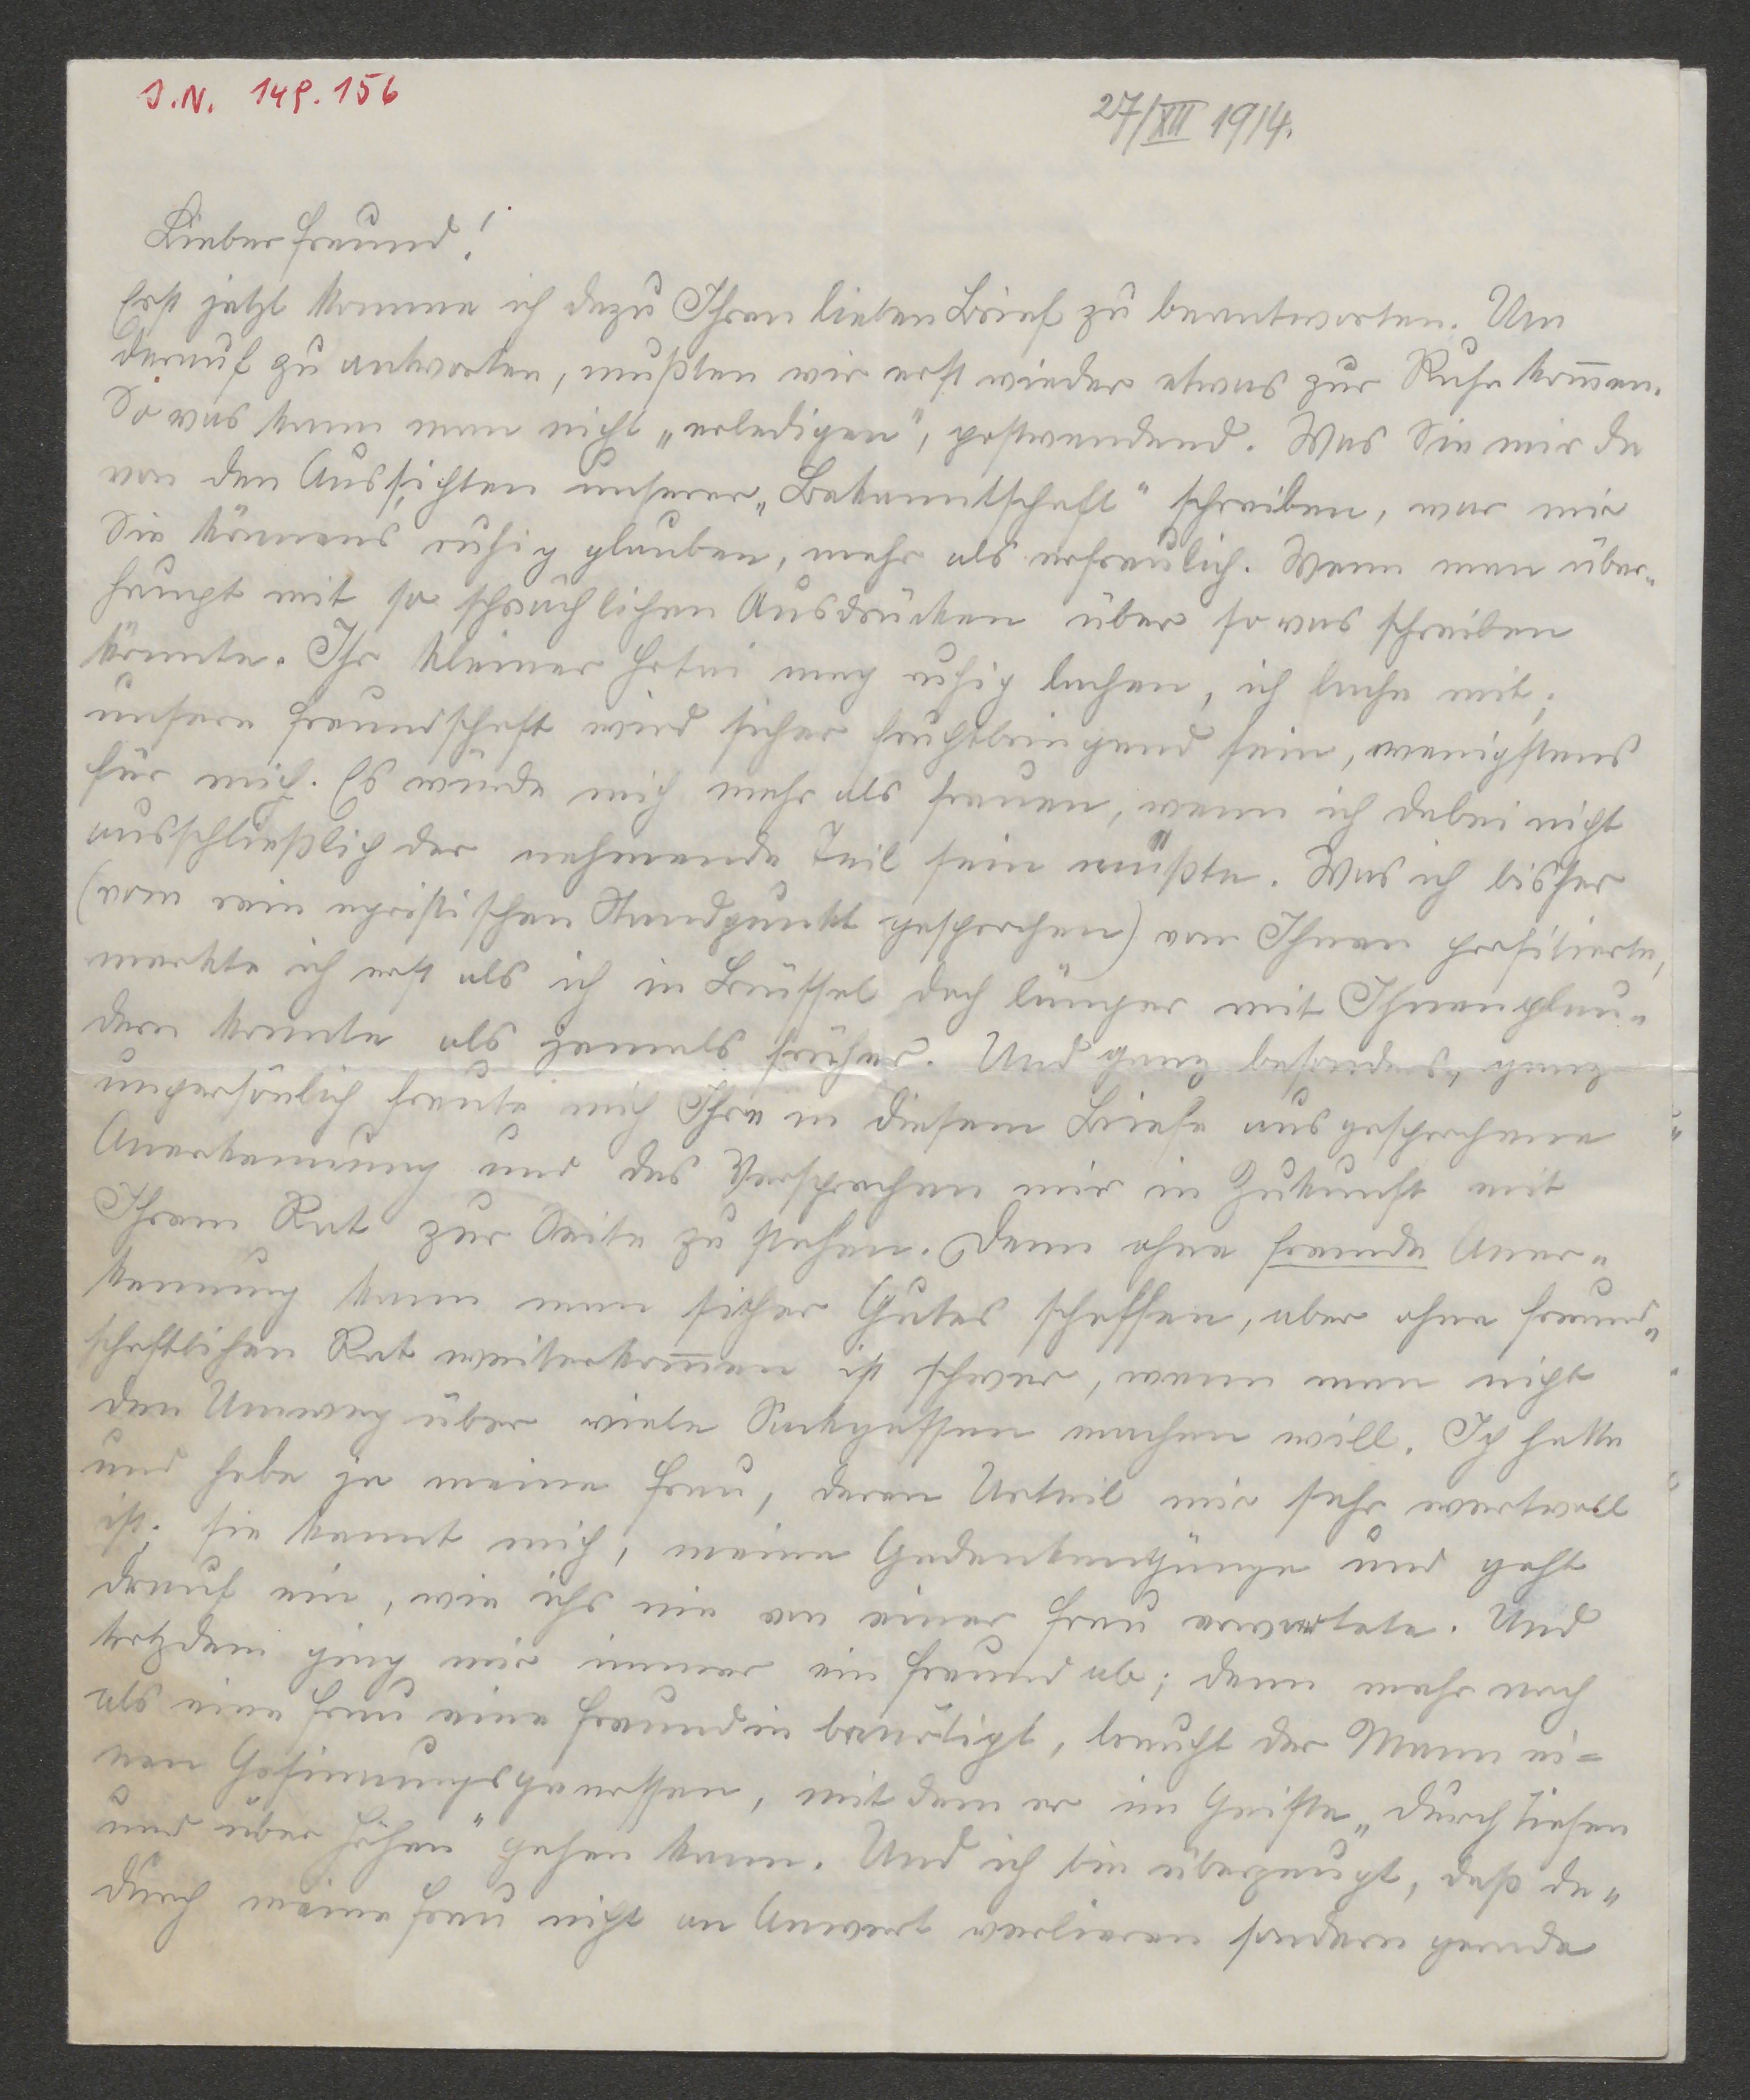 J.N. 149.156
27/XII 1914.
Lieber Freund!
Erst jetzt komme ich dazu Ihren lieben Brief zu beantworten. Um
darauf zu antworten, mußten wir erst wieder etwas zur Ruhe kom̅en.
So was kann man nicht „erledigen", postwendend. Was Sie mir da
von den Aussichten unserer „Bekanntschaft" schreiben, war mir
Sie können's ruhig glauben, mehr als erfreulich. Wenn man über-
haupt mit so schwächlichen Ausdrücken über so was schreiben
könnte. Ihr kleiner Hotei mag ruhig lachen, ich lache mit;
unsere Freundschaft wird sicher fruchtbringend sein, wenigstens
für mich. Es würde mich mehr als freuen, wenn ich dabei nicht
ausschließlich der nehmende Teil sein müßte. Was ich bisher
(vom rein egoistischen Standpunkt gesprochen) von Ihnen profitierte,
merkte ich erst als ich in Brüssel doch länger mit Ihnen plau-
dern konnte als jemals früher. Und ganz besonders, ganz
unpersönlich freute mich Ihre in diesem Briefe ausgesprochene
Anerkennung und das Versprechen mir in Zukunft mit
Ihrem Rat zur Seite zu stehen. Denn ohne fremde Aner-
kennung kann man sicher Gutes schaffen, aber ohne freund-
schaftlichen Rat weiterkom̅en ist schwer, wenn man nicht
den Umweg über viele Sackgassen machen will. Ich hatte
und habe ja meine Frau, deren Urteil mir sehr wertvoll
ist; sie kennt mich, meine Gedankengänge und geht
drauf ein, wie ichs nie von einer Frau erwartete. Und
trotzdem ging mir immer ein Freund ab; denn mehr noch
als eine Frau eine Freundin benötigt, braucht der Mann ei-
nen Gesinnungsgenossen, mit dem er im Geiste „durch Tiefen
und über Höhen" gehen kann. Und ich bin überzeugt, daß da-
durch meine Frau nicht an Anwert verlieren sondern gerade